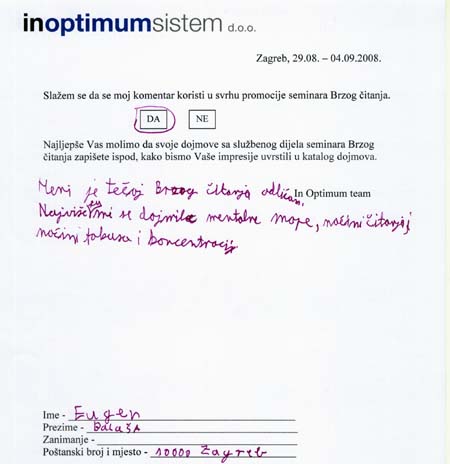 inoptimumsistem d.o.o.
Zagreb, 29.08. – 04.09.2008.
Slažem se da se moj komentar koristi u svrhu promocije seminara Brzog čitanja.
DA NE
Najljepše Vas molimo da svoje dojmove sa službenog dijela seminara Brzog
čitanja zapišete ispod, kako bismo Vaše impresije uvrstili u katalog dojmova.
Meni je tečaj Brzog čitanja odličan. In Optimum team
Najviše su mi se dojmile mentalne mape, načini čitanja,
načini fokusa i koncentracije
Ime - Eugen
Prezime - Balaša
Zanimanje -
Poštanski broj i mjesto - 10000 Zagreb